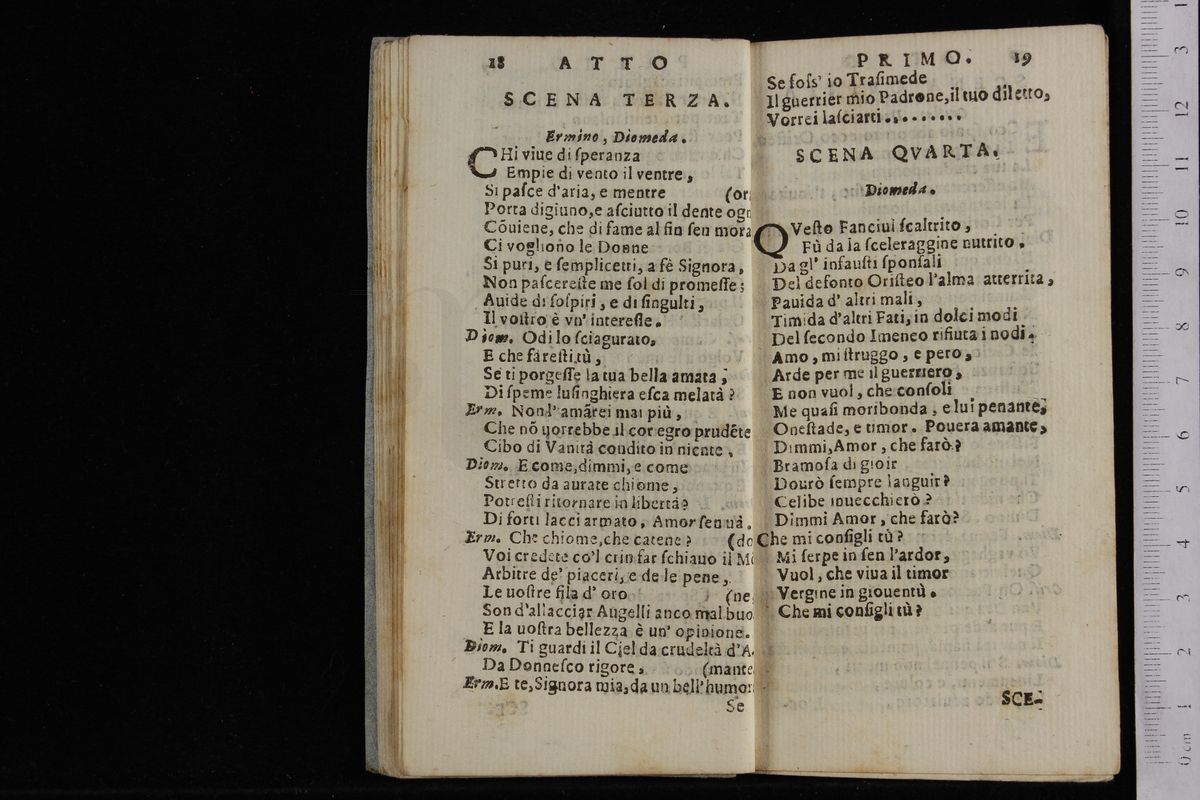 18 ATTO
SCENA TERZA.
Ermino, Diomeda.
CHi viue di ſperanza
Empie di vento il ventre,
Si paſce d'aria, e mentre (or
Porta digiuno, e aſciutto il dente ogn
Cōuiene, che di fame al fin ſen mora
Ci vogliono le Donne
Si puri, e ſemplicetti, a fè Signora,
Non paſcereſte me ſol di promeſſe;
Auide di ſoſpiri, e di ſingulti,
Il voſtro è vn' intereſſe.
Diom. Odi lo ſciagurato,
E che fareſti tù,
Se ti porgeſſe la tua bella amata,
Di ſpeme luſinghiera eſca melata?
Erm. Non l'amarei mai più,
Che nō vorrebbe il cor egro prudēte
Cibo di Vanità condito in niente.
Diom. E come, dimmi, e come
Stretto da aurate chiome,
Potreſti ritornare in libertà?
Di forti lacci armato, Amor ſen uà.
Erm. Che chiome, che catene? (do
Voi credete co'l crin far ſchiauo il Mō
Arbitre de' piaceri, e de le pene,
Le uoſtre fila d'oro (ne
Son d'allacciar Augelli anco mal buo
E la uoſtra bellezza è un' opinione.
Diom. Ti guardi il Ciel da crudeltà d'A.
Da Donneſco rigore, (mante
Erm. E te, Signora mia, da un bell'humor
Se
PRIMO. 19
Se foſs' io Traſimede
Il guerrier mio Padrone, il tuo diletto,
Vorrei laſciarti.........
SCENA QVARTA.
Diomeda.
QVeſto Fanciul ſcaltrito,
Fù da la ſceleraggine nutrito.
Da gl' infauſti ſponſali
Del defonto Oriſteo l'alma atterrita,
Pauida d' altri mali,
Timida d'altri Fati, in dolci modi
Del ſecondo Imeneo rifiuta i nodi.
Amo, mi ſtruggo, e pero,
Arde per me il guerriero,
E non vuol, che conſoli
Me quaſi moribonda, e lui penante,
Oneſtade, e timor. Pouera amante,
Dimmi, Amor, che farò?
Bramoſa di gioir
Dourò ſempre languir?
Celibe inuecchierò?
Dimmi Amor, che farò?
Che mi conſigli tù?
Mi ſerpe in ſen l'ardor,
Vuol, che viua il timor
Vergine in giouentù.
Che mi conſigli tù?
SCE-